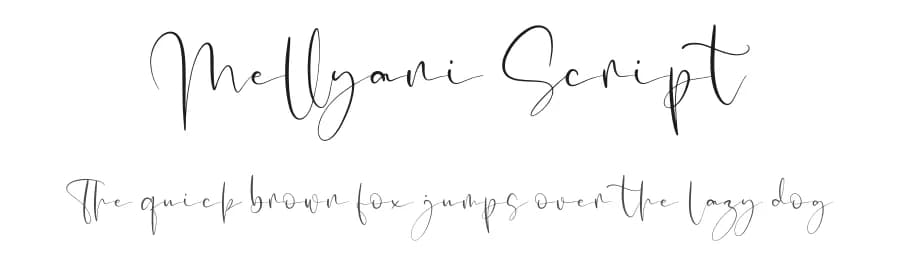 Mellyani Script
The quick brown fox jumps over the lazy dog